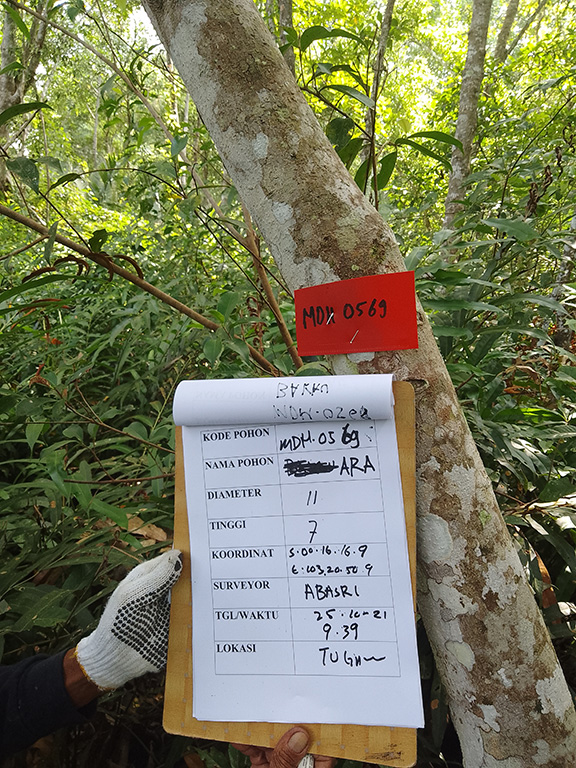 MDH 0569
KODE POHON MDH.0569
NAMA POHON ARA
DIAMETER 11
TINGGI 7
KOORDINAT S.00.16.16.9
E.103.20.50.9
SURVEYOR ABASRI
TGL/WAKTU 25.10-21
9.39
LOKASI